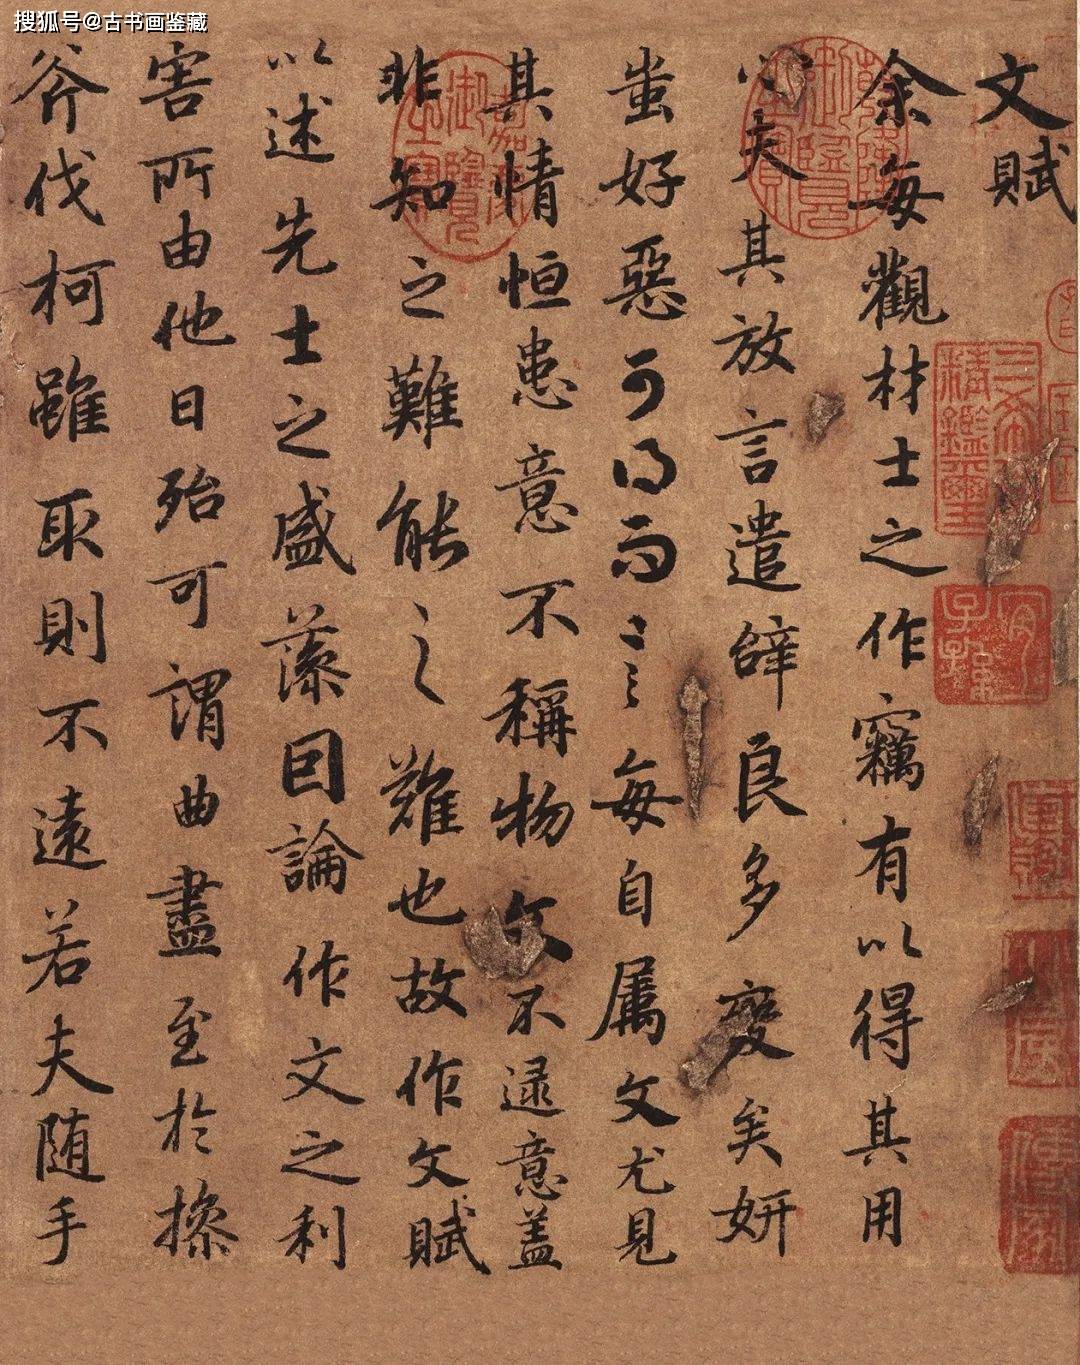 搜狐号@古书画鉴藏
文賦
余每觀材士之作竊有以得其用
心夫其放言遣辭良多變矣妍
蚩好惡可得而言每自屬文尤見
其情恒患意不稱物文不逮意蓋
非知之難能之難也故作文賦
以述先士之盛藻囙論作文之利
害所由他日殆可謂曲盡至於操
斧伐柯雖取則不遠若夫随手
乾隆御覽之寶
嘉慶御覽之寶
三希堂精鑑璽
宜子孫